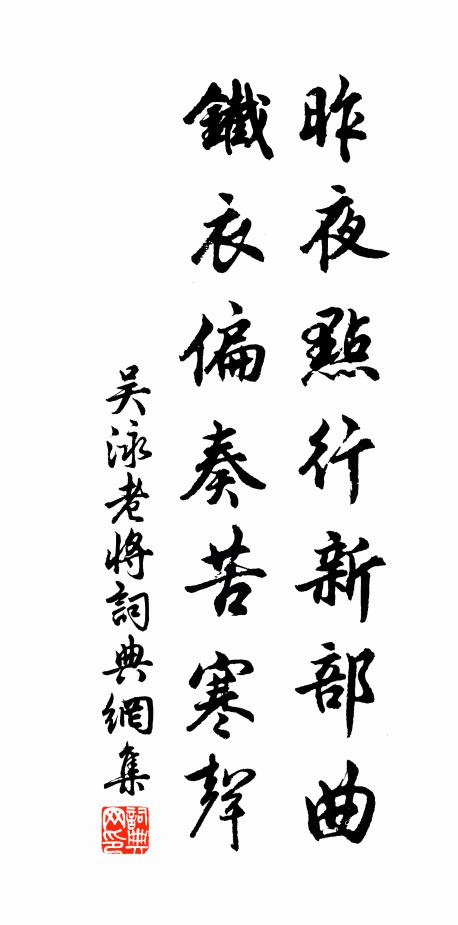 昨夜點行新部曲
鐵衣偏奏苦寒聲
吴泳老將詞典網集
詞典網印